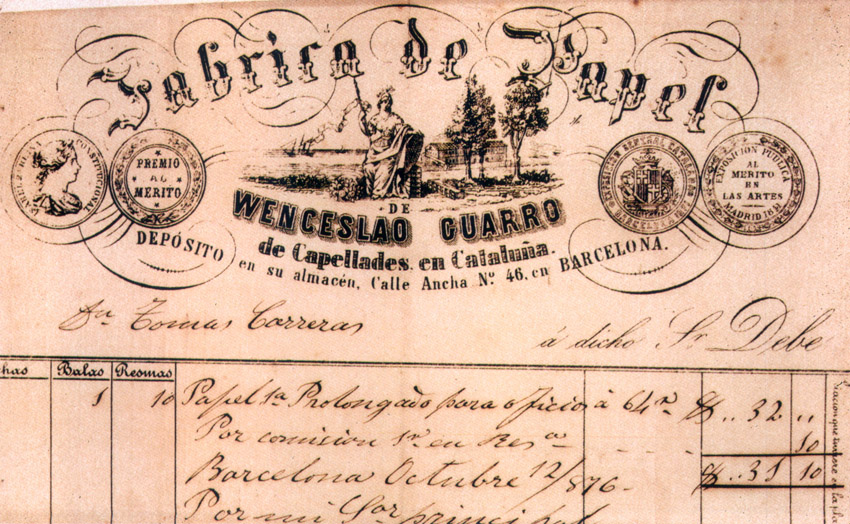 Fabrica de Papel
PREMIO
AL
MERITO
EXPOSICION PUBLICA
AL
MERITO
EN
LAS ARTES
MADRID
DE
WENCESLAO GUARRO
de Capellades. en Cataluña.
DEPÓSITO en su almacén, Calle Ancha Nº 46. en BARCELONA.
Tomas Carreras
á dicho Sr. Debe
Balas Resmas
1 10 Papel 1a Prolongado para oficio á 64 $ .. 32 ,,
Por comision 1 en Resa 10
Barcelona Octubre 12/876.
Por mi Sor principal